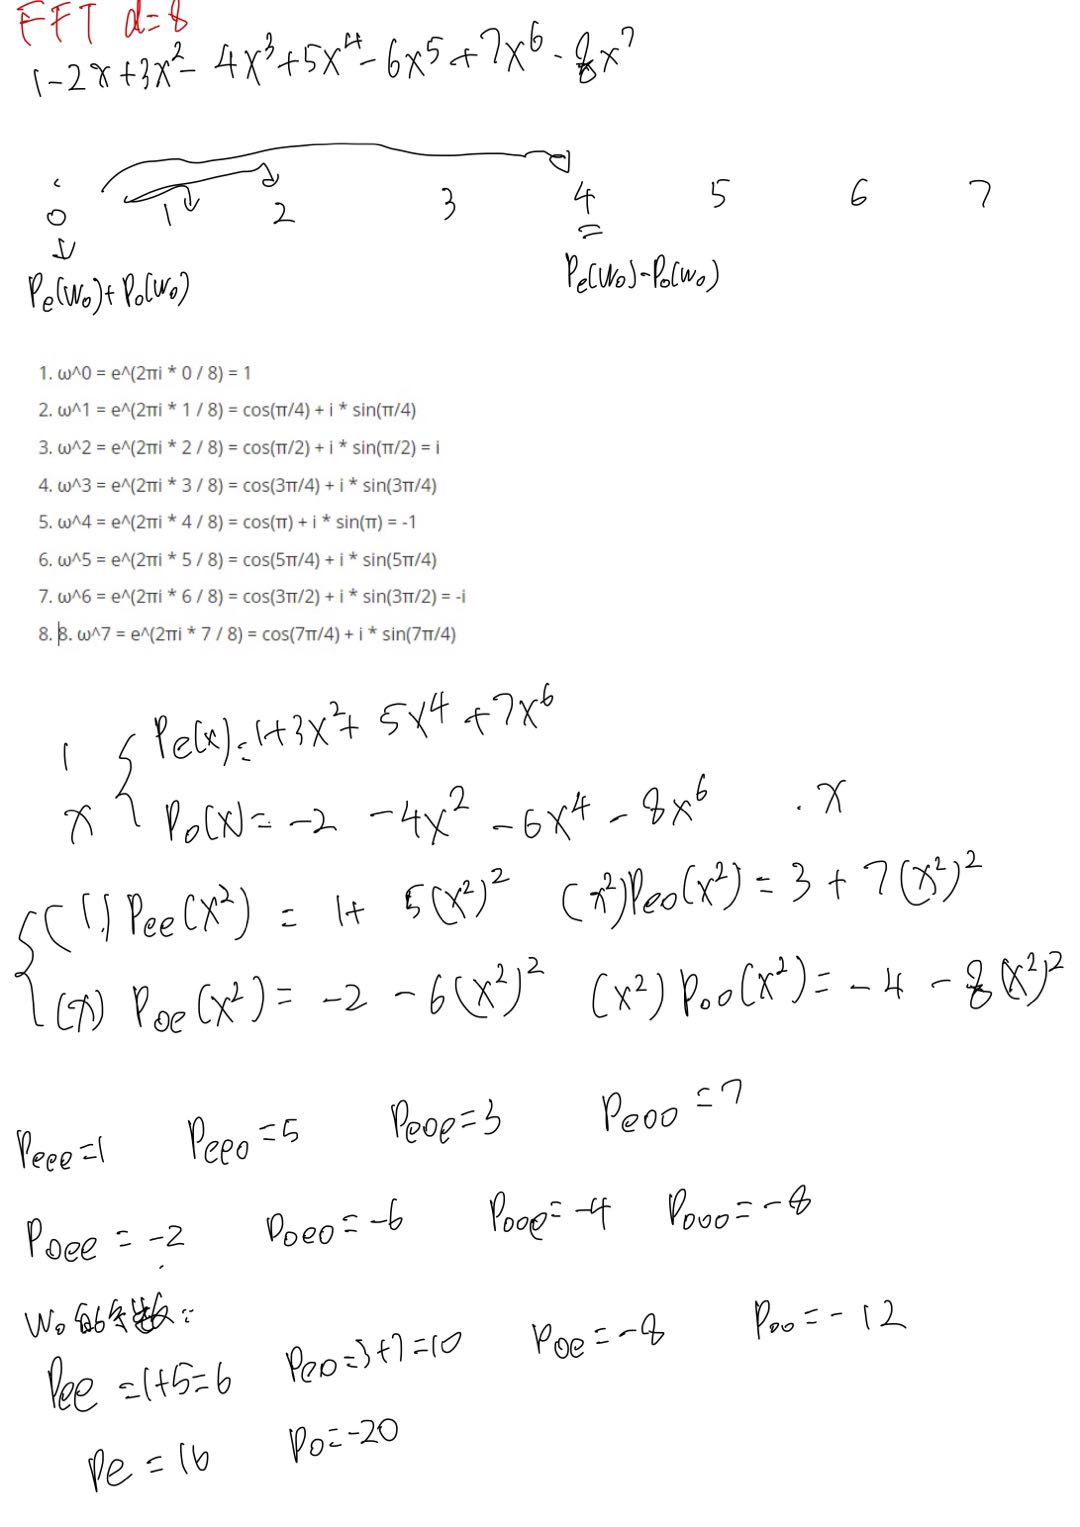 FFT d=8
1-2x+3x²-4x³+5x⁴-6x⁵+7x⁶-8x⁷
0 1 2 3 4 5 6 7
Pe(W₀)+Po(W₀) Pe(W₀)-Po(W₀)
1. ω^0 = e^(2πi * 0 / 8) = 1
2. ω^1 = e^(2πi * 1 / 8) = cos(π/4) + i * sin(π/4)
3. ω^2 = e^(2πi * 2 / 8) = cos(π/2) + i * sin(π/2) = i
4. ω^3 = e^(2πi * 3 / 8) = cos(3π/4) + i * sin(3π/4)
5. ω^4 = e^(2πi * 4 / 8) = cos(π) + i * sin(π) = -1
6. ω^5 = e^(2πi * 5 / 8) = cos(5π/4) + i * sin(5π/4)
7. ω^6 = e^(2πi * 6 / 8) = cos(3π/2) + i * sin(3π/2) = -i
8. 8. ω^7 = e^(2πi * 7 / 8) = cos(7π/4) + i * sin(7π/4)
1 { Pe(x)=1+3x²+5x⁴+7x⁶
x Po(x)=-2 -4x² -6x⁴ -8x⁶ .x
{ (1) Pee(x²) = 1+ 5(x²)² (x²)Peo(x²) = 3+7(x²)²
(x) Poe(x²) = -2 -6(x²)² (x²) Poo(x²) = -4 -8(x²)²
Peee=1 Peeo=5 Peoe=3 Peoo=7
Poee=-2 Poeo=-6 Pooe=-4 Pooo=-8
W₀的系数:
Pee=1+5=6 Peo=3+7=10 Poe=-8 Poo=-12
Pe=16 Po=-20